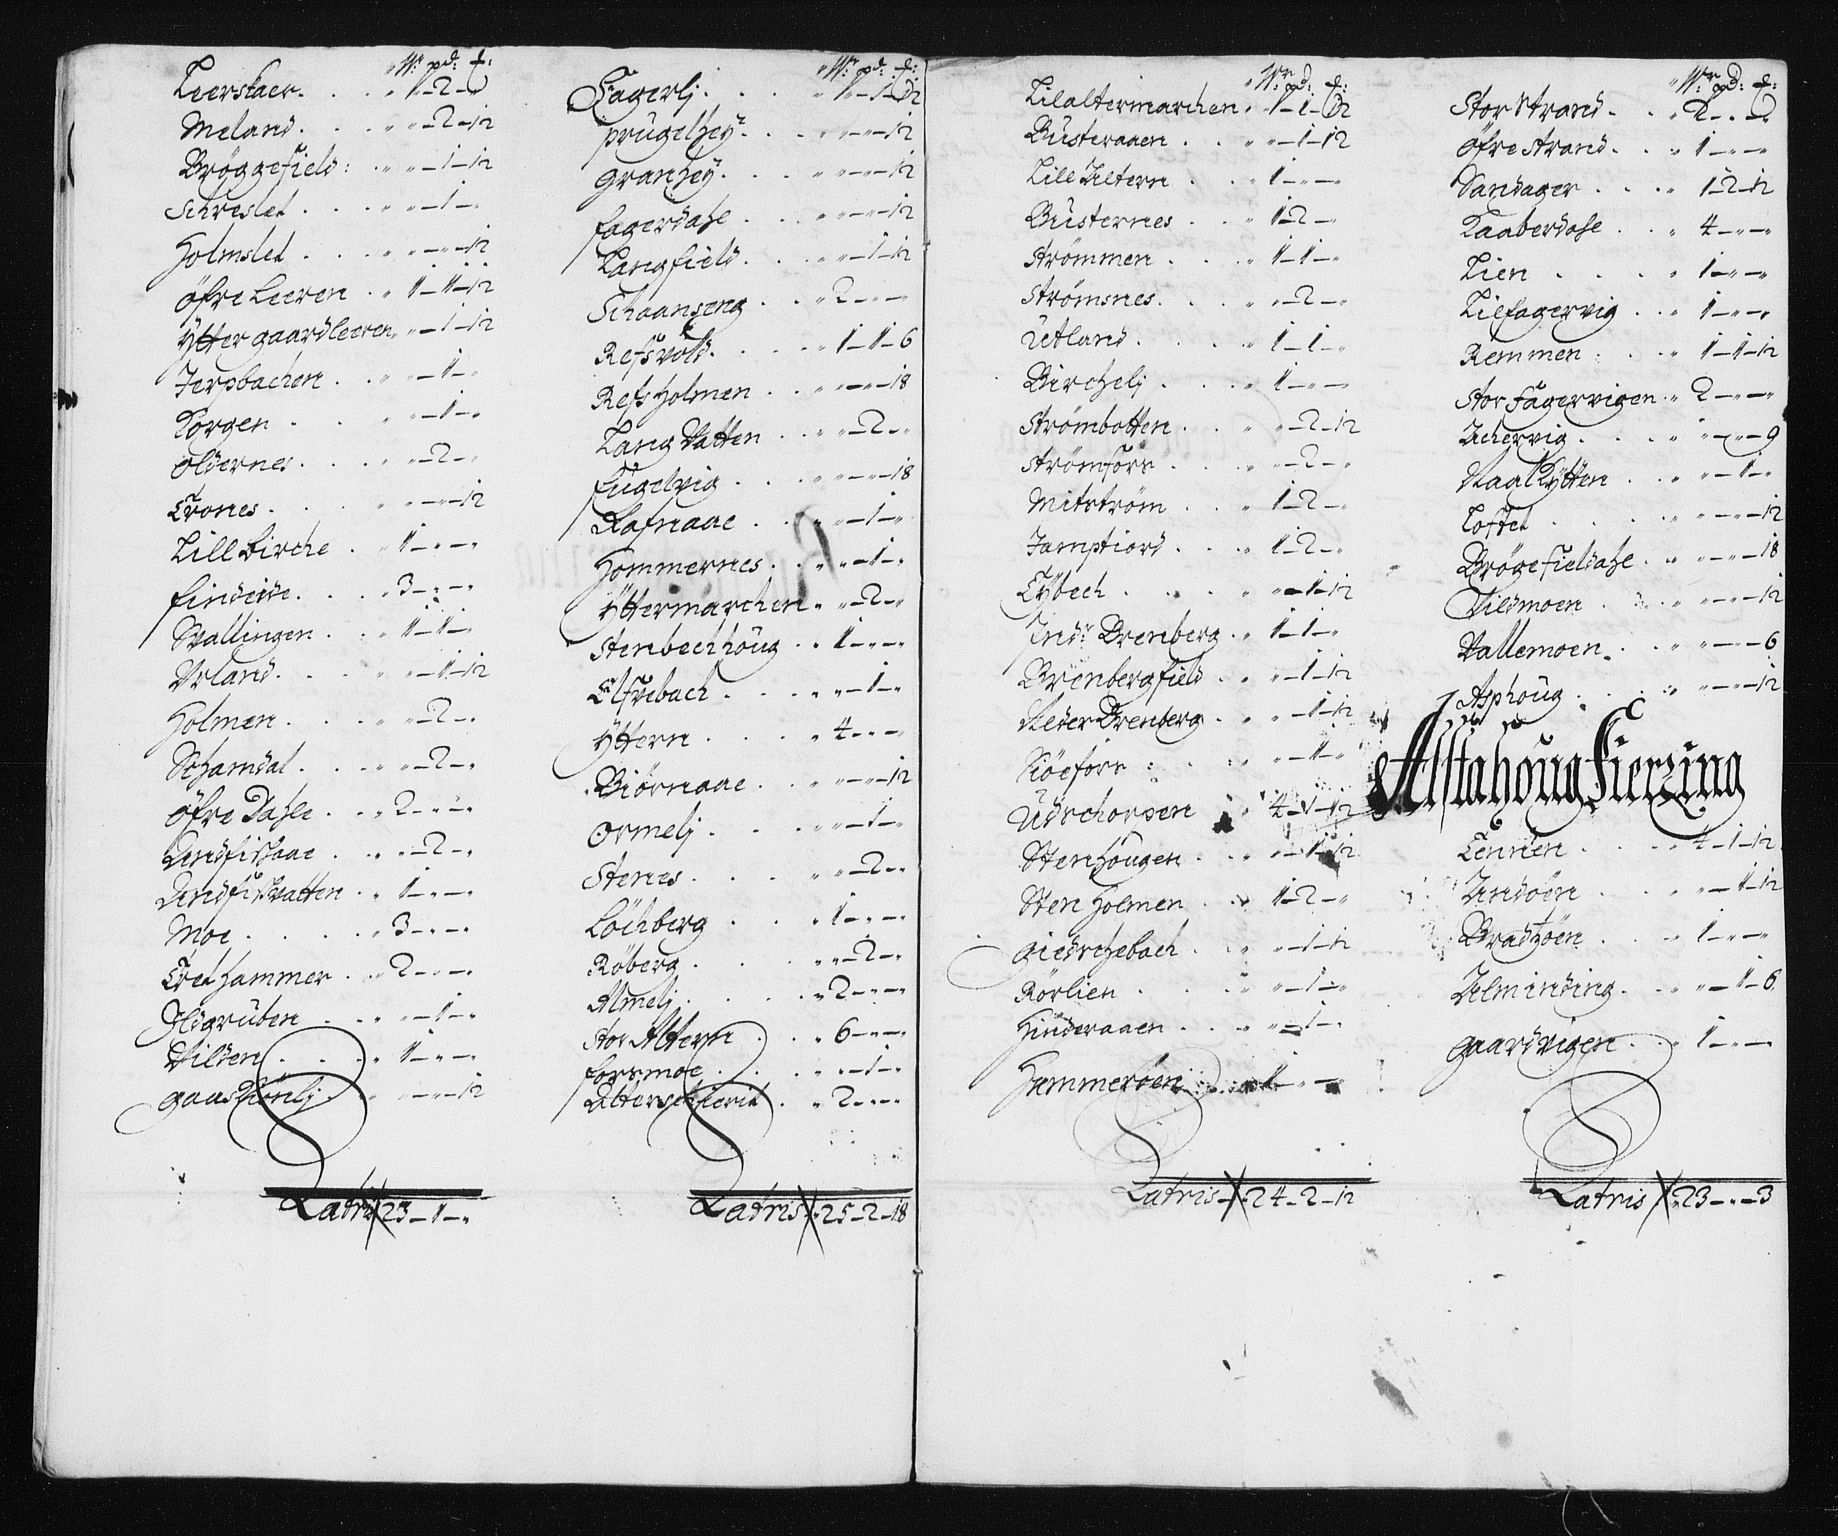 W: pd: ƒ:
Leerskaer. . . . 1–2–„
Meland. . . . „–2–12
Bröggefield: . . „–1–12
Schreslet . . . „–1–„
Holmslet . . . . „–„–12
Öfre Leeren . . 1–1–12
Ytter gaardleeren „–1–12
Jerpbachen . . . „–1–„
Korgen . . . „–1–„
Oldernes. . . . „–2–„
Trones. . . . „–„–12
Lill birche . . 1–„–„
findeide. . . . 3–„–„
Svallingen . . . 1–1–„
Urland. . . . „–1–12
Holmen. . . . „–2–„
Schamdal. . . . „–2–„
Öfre Dahle . . . 2–„–„
Andfiskaae . . . „–2–„
Andfiskvatten . . 1–„–„
Moe . . . . 3–„–„
Trethammer . . . 2–„–„
Ildgruben . . . „–1–„
Vilden . . . . 1–„–„
gaaskiönlj. . . „–„–12
Latris 23–1–„
W: pd: ƒ:
Fagerlj. . . . „–1–12
prügelhey. . . . „–„–12
Granhey. . . . „–„–12
fagerdahl . . . „–„–12
Langfield. . . . „–1–12
Schaanseng . . . 2–„–„
Refsvold. . . . 1–1–6
Refsholmen . . . „–„–18
Lang Vatten . . „–2–„
Fugelvig . . . „–„–18
Rafnaae . . . „–1–„
Hommernes . . . „–1–„
Yttermarchen . . „–2–„
Stenbechhöug . . 1–„–„
Elfvebach . . . „–1–„
Yttern . . . . 4–„–„
Biörnaae . . . „–„–12
Ormelj . . . . „–1–„
Stenes . . . . „–2–„
Löchberg . . . 1–„–„
Röberg . . . . „–2–„
Almelj . . . . 2–„–„
Stor Altern . . 6–„–„
forsmoe . . . . „–1–„
Alterschierit . . 2–„–„
Latris 25–2–18
Wr: pd: ƒ:
Lilaltermarchen . 1–1–12
Busteraaen . . . „–1–12
Lill Altern . . 1–„–„
Busternes . . . 1–2–„
Strömmen . . . 1–1–„
Strömsnes. . . . „–2–„
Utland . . . . 1–1–„
Birchelj . . . 1–„–„
Strömbotten . . „–2–12
Strömfors . . . „–2–„
Mitström . . . 1–2–„
Jamptiord . . . 1–2–„
Tÿbech . . . . „–1–12
Indr Brenberg . . 1–1–„
Brenbergfield . . „–1–12
Neder Brenberg . „–1–12
Siöefors . . . „–1–„
Udschorpen . . . 4–1–12
Stenhöugen . . . „–1–12
Stenholmen . . . 1–2–„
Giedschebach . . „–1–12
Rörlien . . . . „–1–„
Hinderaaen . . . „–1–„
Hemmeröen . . . 1–„–„
Latris 24–2–12
Wr: pd: ƒ:
Stor Strand. . . 2–„–„
Öfre strand. . . 1–„–„
Sandager . . . 1–2–12
Kaaberdahl . . . 4–„–„
Lien . . . . 1–„–„
Lilfagervig . . 1–„–„
Remmen . . . . 1–1–12
Stor Fagervigen . 2–„–„
Achervig . . . „–„–9
Naal Kytten . . „–1–„
Toftet . . . . „–„–12
Brögefieldahl . . „–„–18
Vildmoen . . . „–„–12
Vallemoen. . . . „–„–6
Asphöug . . . . „–„–12
Alstahöug Fierzing
Tennen . . . . 4–1–12
Andöen . . . . „–1–12
Bradzöen . . . 1–„–„
Alminding . . . „–1–6
Gaardvigen . . . 1–„–„
Latris 23–„–3